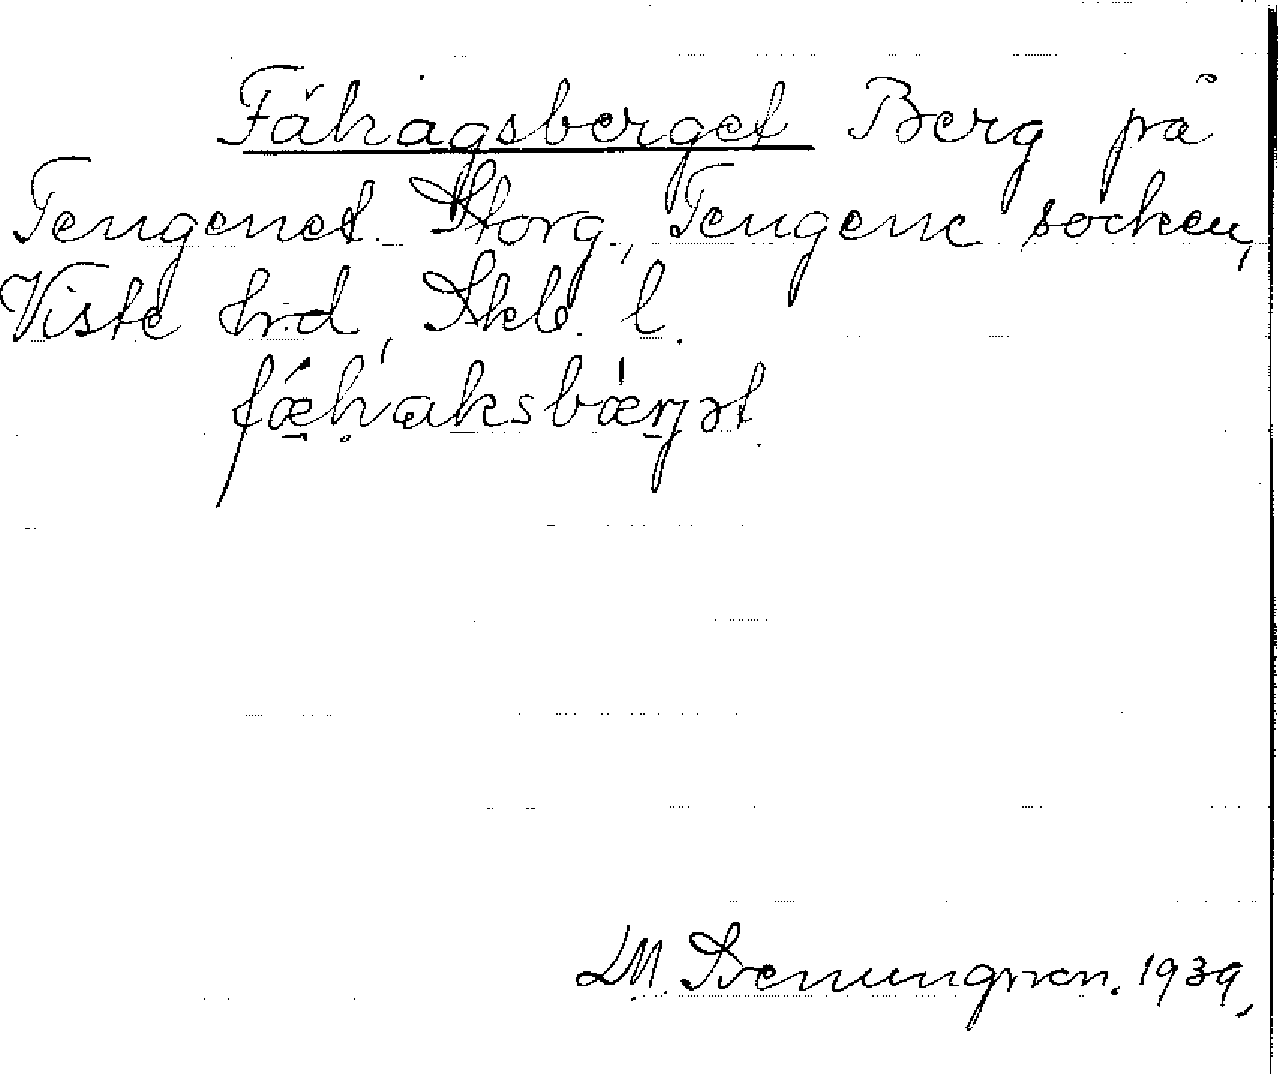 Fähagsberget Berg på
Tengenet Storg., Tengene socken,
Viste hrd, Skb. l.
fæ̀haksbær̀jət
LM. Svenungson. 1939,